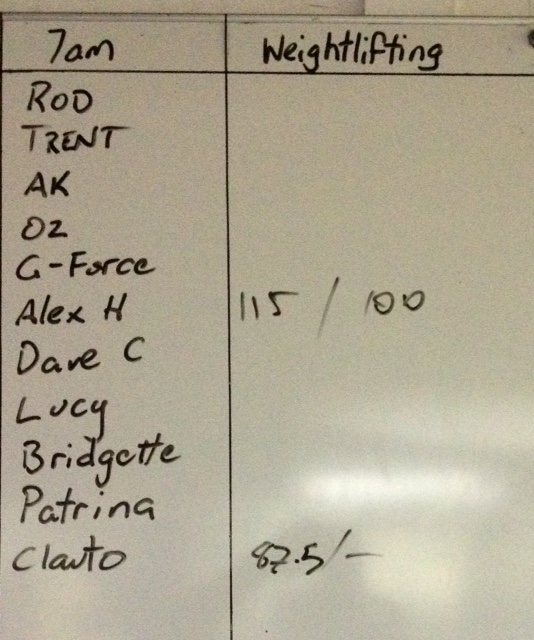 7am Weightlifting
ROD
TRENT
AK
OZ
G-Force
Alex H 115 / 100
Dave C
Lucy
Bridgette
Patrina
Clauto 87.5/-